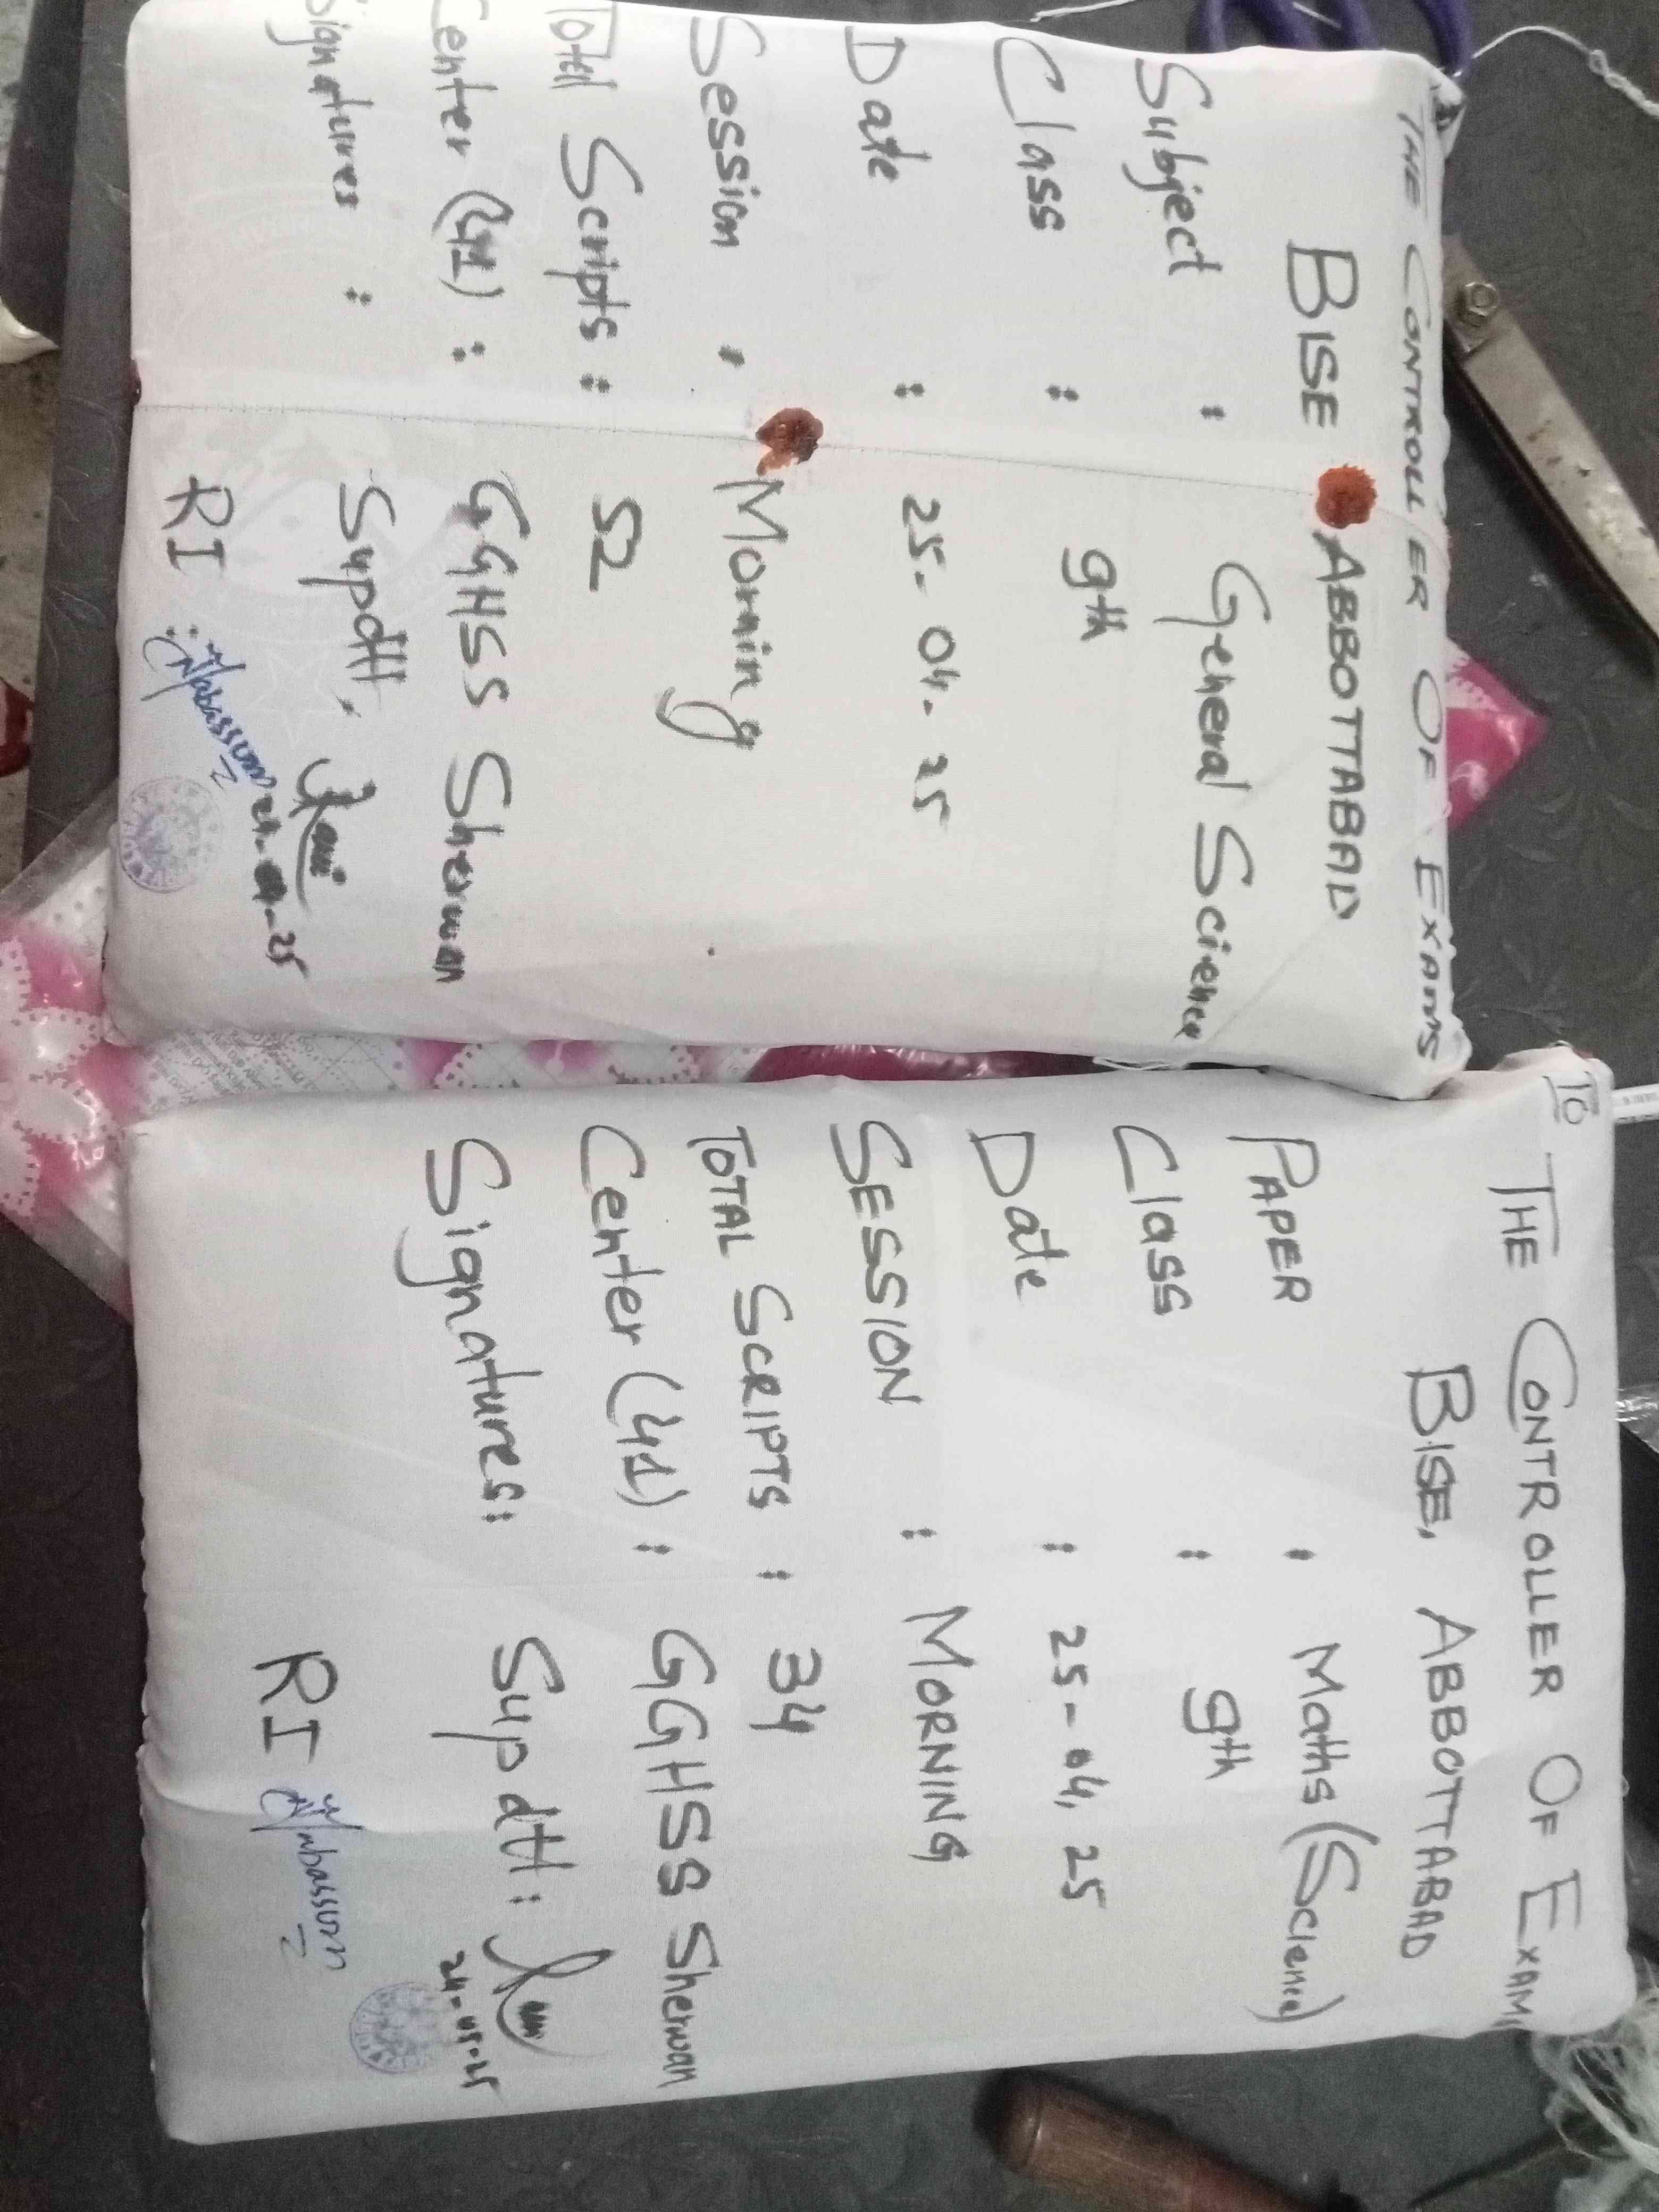 THE CONTROLLER OF EXAMS
BISE ABBOTTABAD
Subject : General Science
Class : 9th
Date : 25-04-25
Session : Morning
Total Scripts : 52
Center (41) : GGHSS Sherwan
Signatures : Supdtt.
RI : Tabassum
24-04-25
To
THE CONTROLLER OF EXAM
BISE, ABBOTTABAD
PAPER : Maths (Science)
Class : 9th
Date : 25-04, 25
SESSION : MORNING
TOTAL SCRIPTS : 34
Center (41) : GGHSS Sherwan
Signatures: Supdtt:
24-05-25
RI Tabassum